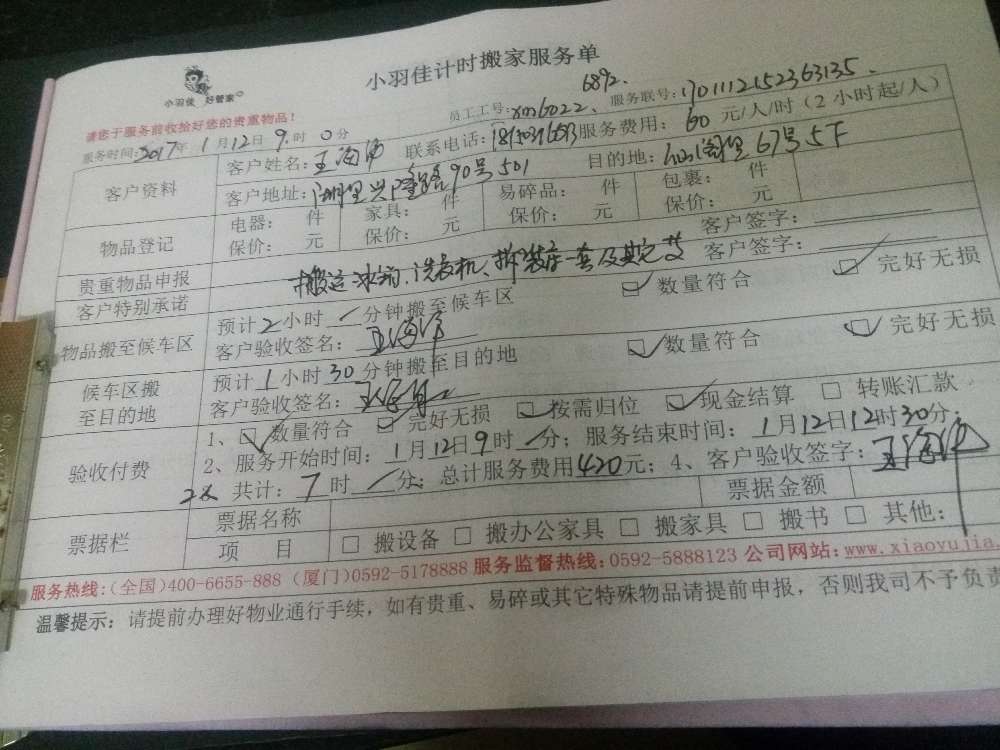 小羽佳计时搬家服务单
小羽佳 好管家
请您于服务前收拾好您的贵重物品!
6892.
员工工号: xm6022、 服务联号: 1701112152363135
服务时间: 2017年 1月12日 9时 0分
客户资料 客户姓名: 联系电话: 服务费用: 60 元/人/时(2小时起/人)
客户地址: 兴隆路90号501 目的地: 67号
物品登记 电器: 件 家具: 件 易碎品: 件 包裹: 件
保价: 元 保价: 元 保价: 元 保价: 元
贵重物品申报 客户签字:
客户特别承诺 搬运冰箱、洗衣机、拆装床一套及其它 客户签字:
物品搬至候车区 预计2小时 / 分钟搬至候车区 数量符合 完好无损
客户验收签名:
候车区搬至目的地 预计1小时30分钟搬至目的地 数量符合 完好无损
客户验收签名:
验收付费 1、 数量符合 完好无损 按需归位 现金结算 □ 转账汇款
2、服务开始时间: 1月12日9时 / 分; 服务结束时间: 1月12日12时30分;
2人 共计: 7时 / 分; 总计服务费用420元; 4、客户验收签字:
票据栏 票据名称 票据金额
项 目 □ 搬设备 □ 搬办公家具 □ 搬家具 □ 搬书 □ 其他:
服务热线:(全国)400-6655-888 (厦门)0592-5178888 服务监督热线:0592-5888123 公司网站:www.xiaoyujia.
温馨提示: 请提前办理好物业通行手续,如有贵重、易碎或其它特殊物品请提前申报,否则我司不予负责